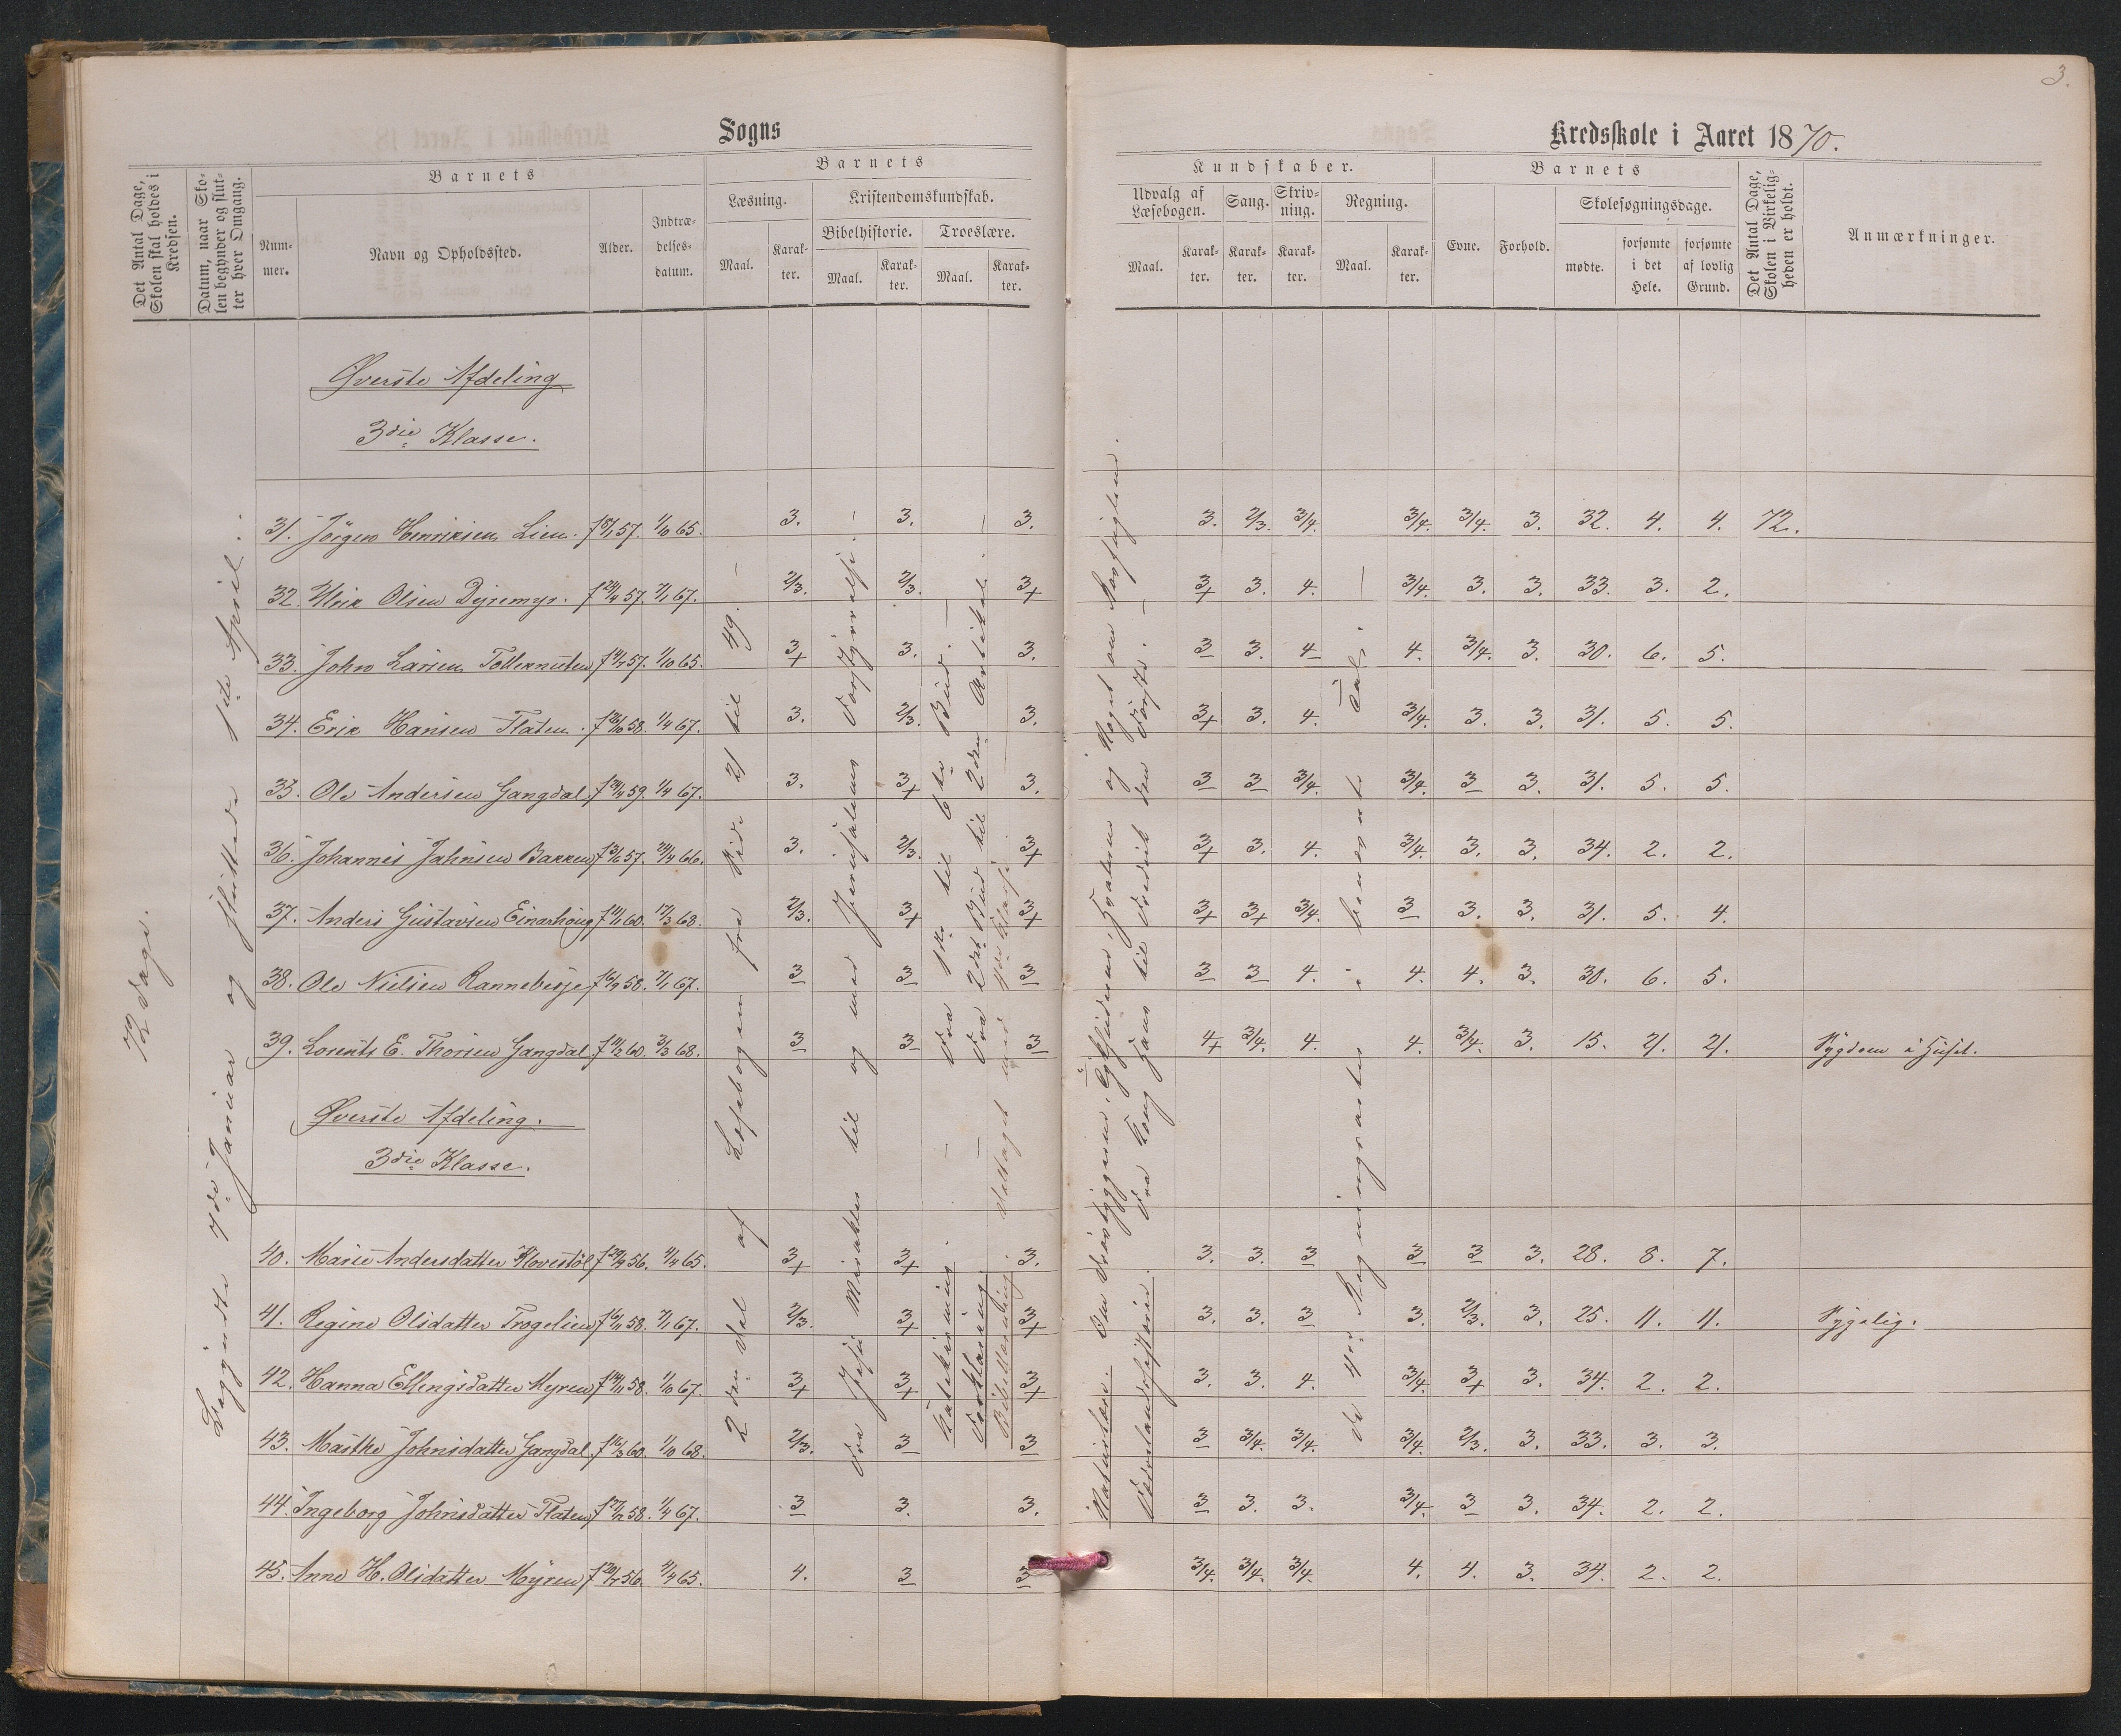 3.
Sogns
Kredsskole i Aaret 1870.
Det Antal Dage, Skolen skal holdes i Kredsen.
Datum, naar Skolen begynder og slutter hver Omgang.
Barnets
Nummer.
Navn og Opholdssted.
Alder.
Indtrædelsesdatum.
Barnets
Læsning.
Maal.
Karakter.
Kristendomskundskab.
Bibelhistorie.
Maal.
Karakter.
Troeslære.
Maal.
Karakter.
Kundskaber.
Udvalg af Læsebogen.
Maal.
Karakter.
Sang.
Karakter.
Skrivning.
Karakter.
Regning.
Maal.
Karakter.
Barnets
Evne.
Forhold.
Skolesøgningsdage.
mødte.
forsømte i det Hele.
forsømte af lovlig Grund.
Det Antal Dage, Skolen i Virkeligheden er holdt.
Anmærkninger.
72 Dage.
Begyndte 7de Januar og sluttede 1ste April.
Øverste Afdeling
3die Klasse.
2den Del af Læsebogen fra Side 21 til 49.
Fra Jesu Mirakler til og med Jerusalems Forstyrrelse.
Katekisning. Fra 1ste til 6te Bud.
Forklaring. Fra 2det Bud til 2den Artikel.
Bibellæsning. Deltaget med
Naturlære. Om
Fædrelandshistorie. Fra Kong Hans til Fredrik den Første.
de 4 Regningsarter i benævnte Tal.
31. Jörgen Henriksen Lien. f 57. 1/10 65. 3. 3. 3. 3. 2/3. 3/4. 3/4. 3/4. 3. 32. 4. 4. 72.
32. Ulrik Olsen Dyremyr. f 24/4 57. 7/1 67. 2/3. 2/3. 3+ 3+ 3. 4. 3/4. 3. 3. 33. 3. 2.
33. John Larsen Tellernuten f 57. 1/10 65. 3+ 3. 3. 3 3. 4 4. 3/4. 3. 30. 6. 5.
34. Erik Hansen Flaten. f 58. 1/4 67. 3. 2/3. 3. 3+ 3. 4. 3/4. 3. 3. 31. 5. 5.
35. Ole Andersen Gangdal. f 59. 1/4 67. 3. 3+ 3. 3 3 3/4. 3/4. 3 3. 31. 5. 5.
36. Johannes Jahnsen Bakken f 57. 24/4 66. 3. 2/3. 3+ 3+ 3. 4. 3/4. 3. 3. 34. 2. 2.
37. Anders Gustavsen Einarhoug f 60. 17/3 68. 2/3. 3+ 3+ 3+ 3+ 3/4. 3 3. 3. 31. 5. 4.
38. Ole Nielsen Rannebesje f 58. 7/1 67. 3 3 3 3 3 4. 4. 4. 3. 30. 6. 5.
39. Lorents E. Thorsen Gangdal. f 60. 3/3 68. 3 3 3 4+ 3/4. 4. 4. 3/4. 3. 15. 21. 21. Sygdom i Huset.
Øverste Afdeling.
3die Klasse.
40. Marie Andersdatter Klovestöl f 56. 4/4 65. 3+ 3+ 3. 3. 3. 3 3 3 3. 28. 8. 7.
41. Regine Olsdatter Trogelien f 58. 7/1 67. 2/3. 3+ 3+ 3. 3. 3 3. 2/3. 3. 25. 11. 11. Sygelig.
42. Hanna Ellengsdatter Myren f 58. 1/10 67. 3+ 3+ 3+ 3. 3. 4. 3/4. 3+ 3. 34. 2. 2.
43. Marthe Johnsdatter Gangdal. f 16/3 60. 1/10 68. 2/3. 3 3 3 3/4. 3/4. 3/4. 2/3. 3. 33. 3. 3.
44. Ingeborg Johnsdatter Flaten f 58. 1/4 67. 3 3. 3. 3 3. 3. 3/4. 3 3. 34. 2. 2.
45. Anne H. Olsdatter Myren f 56. 4/4 65. 4. 3 3 3/4. 3/4. 3/4. 4. 4. 3. 34. 2. 2.